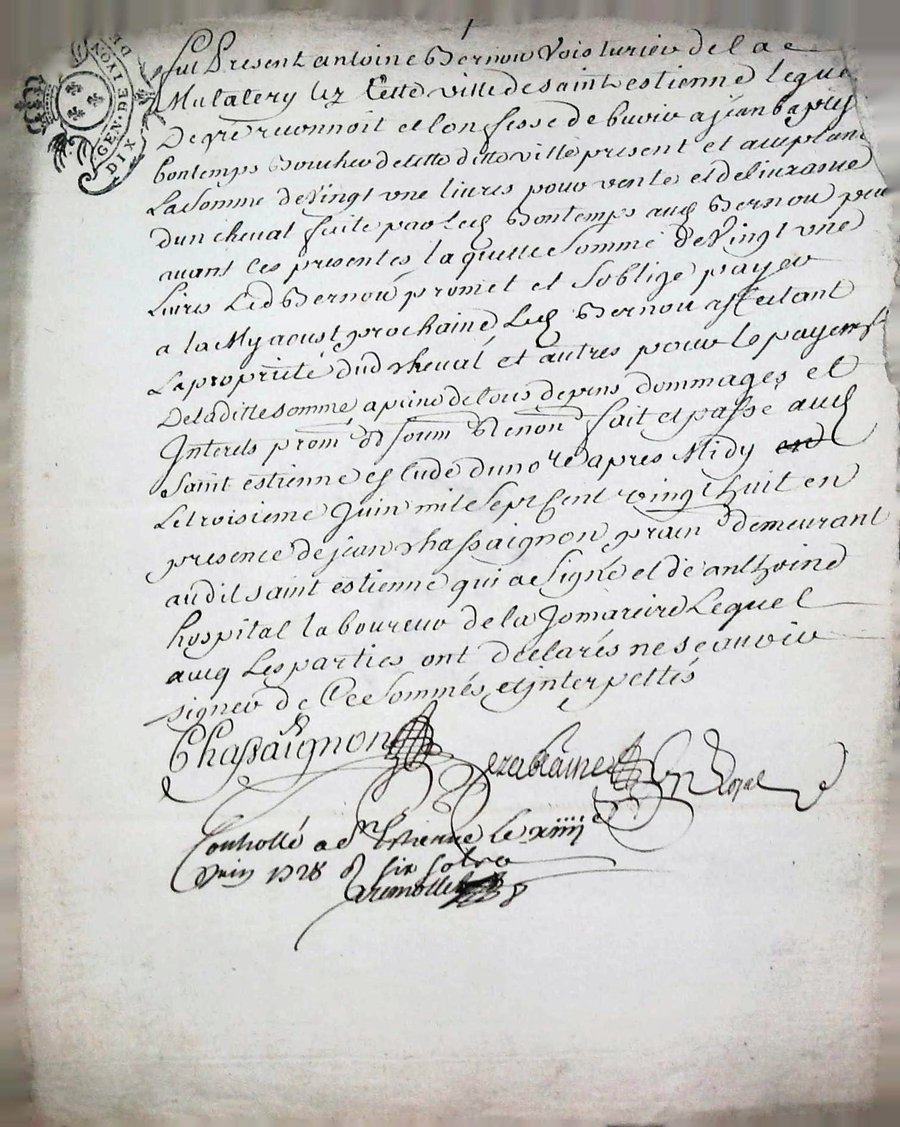 GEN. DE LYON
DIX
DE
fut Present antoine Bernou Voisturier de la
Mulatery lez Cette ville de saint estienne leque
De gré reconnoit et confesse debvoir a jean bap
bontemps Boucher de cette ditte ville present et acceptant
La Somme de Vingt une livres pour vente et delivrance
dun cheval faite par led Bontemps aud Bernou
avant ces presentes laquelle somme de Vingt une
Livres Led Bernou promet et Soblige payer
a la My aoust prochaine Led Bernou affectant
La proprieté dud cheval et autres pour le payemt
De laditte somme a peine de tous depens dommages et
Interets prom soum Renon fait et passé aud
Saint estienne estude du nore apres Midy
Le troisieme Juin mil Sept Cent vingt huit en
presence de jean Chassaignon demeurant
audit saint estienne qui a Signé et de anthoine
hospital laboureur de la Jomareire Lequel
avecq Les parties ont declarés ne scavoir
signer de Ce Sommés et interpellés
Chassaignon
Controllé a St Estienne le xiiii e
Juin 1728 six sols